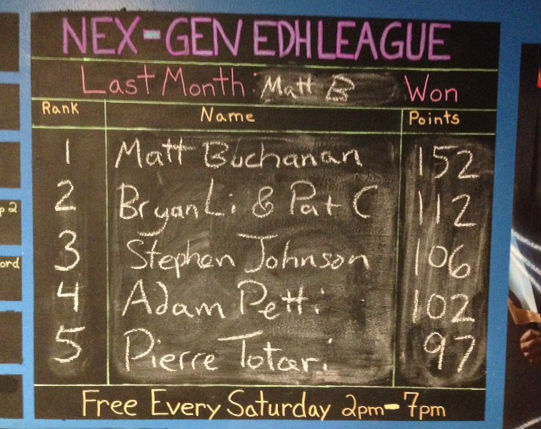 NEX-GEN EDH LEAGUE
Last Month: Matt B Won
Rank Name Points
1 Matt Buchanan 152
2 Bryan Li & Pat C 112
3 Stephen Johnson 106
4 Adam Petti 102
5 Pierre Totari 97
Free Every Saturday 2pm-7pm
p 2
ord